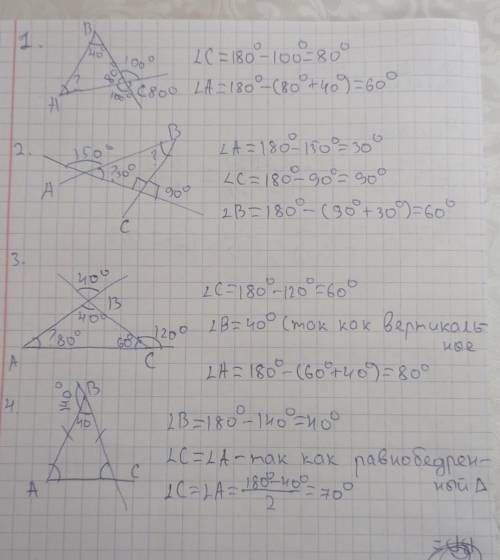 1.
B
40
100°
80
?
A
100°
C 80°
∠C=180°-100°=80°
∠A=180°-(80°+40°)=60°
2.
150°
B
?
?30°
A
90°
C
∠A=180°-150°=30°
∠C=180°-90°=90°
∠B=180°-(90°+30°)=60°
3.
40°
B
40°
120°
?80°
60°
A
C
∠C=180°-120°=60°
∠B=40° (так как вертикаль-
ные
∠A=180°-(60°+40°)=80°
4.
140°
B
40
A
C
∠B=180°-140°=40°
∠C=∠A-так как равнобедрен-
ный Δ
∠C=∠A=180°-40°/2=70°